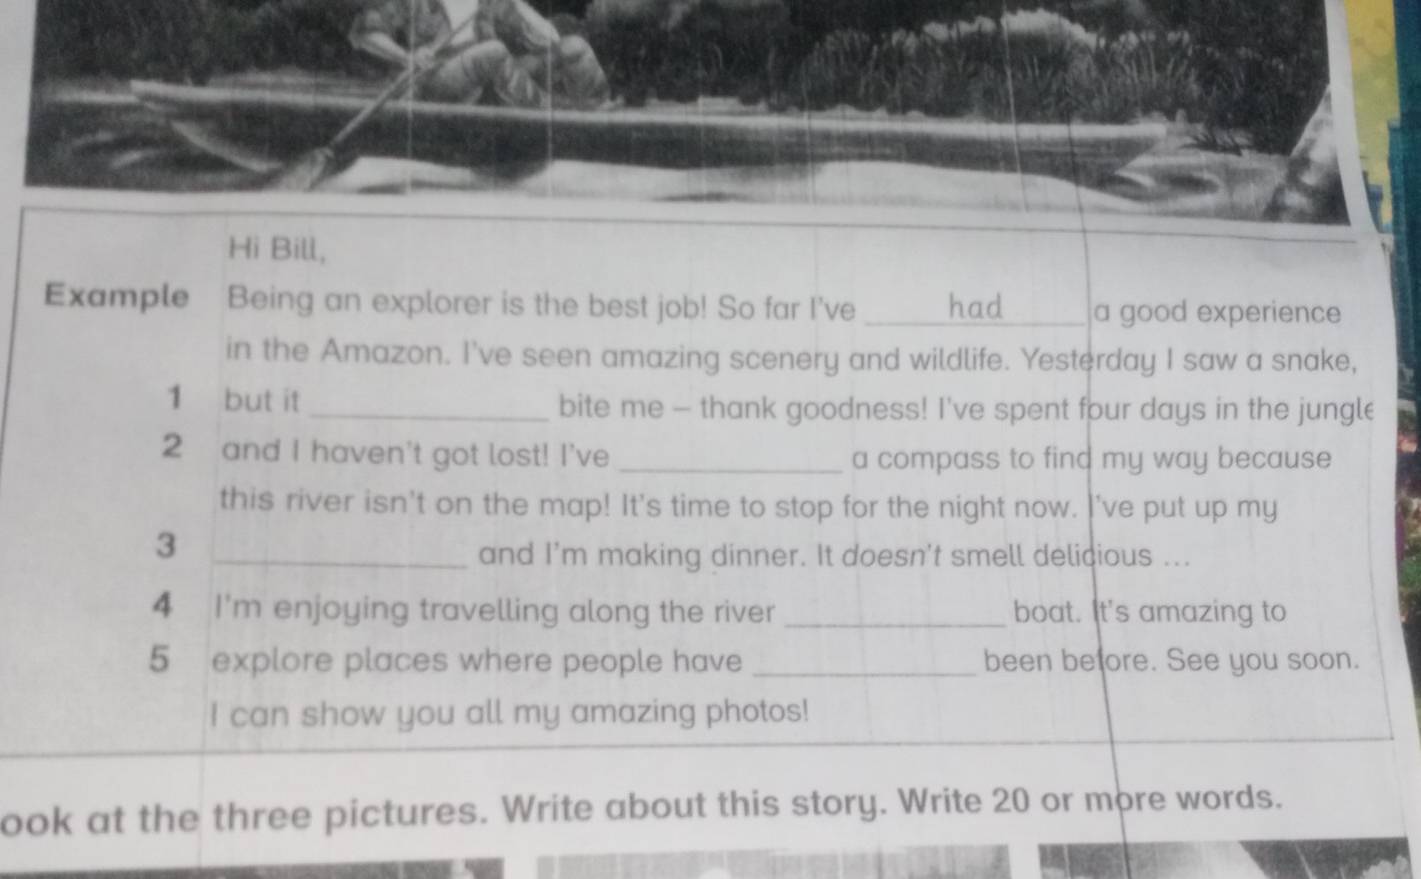 Hi Bill,
Example Being an explorer is the best job! So far I've had a good experience
in the Amazon. I've seen amazing scenery and wildlife. Yesterday I saw a snake,
1 but it ____________ bite me – thank goodness! I've spent four days in the jungle
2 and I haven't got lost! I've ____________ a compass to find my way because
this river isn't on the map! It's time to stop for the night now. I've put up my
3 ____________ and I'm making dinner. It doesn't smell delicious ...
4 I'm enjoying travelling along the river ____________ boat. It's amazing to
5 explore places where people have ____________ been before. See you soon.
I can show you all my amazing photos!
ook at the three pictures. Write about this story. Write 20 or more words.